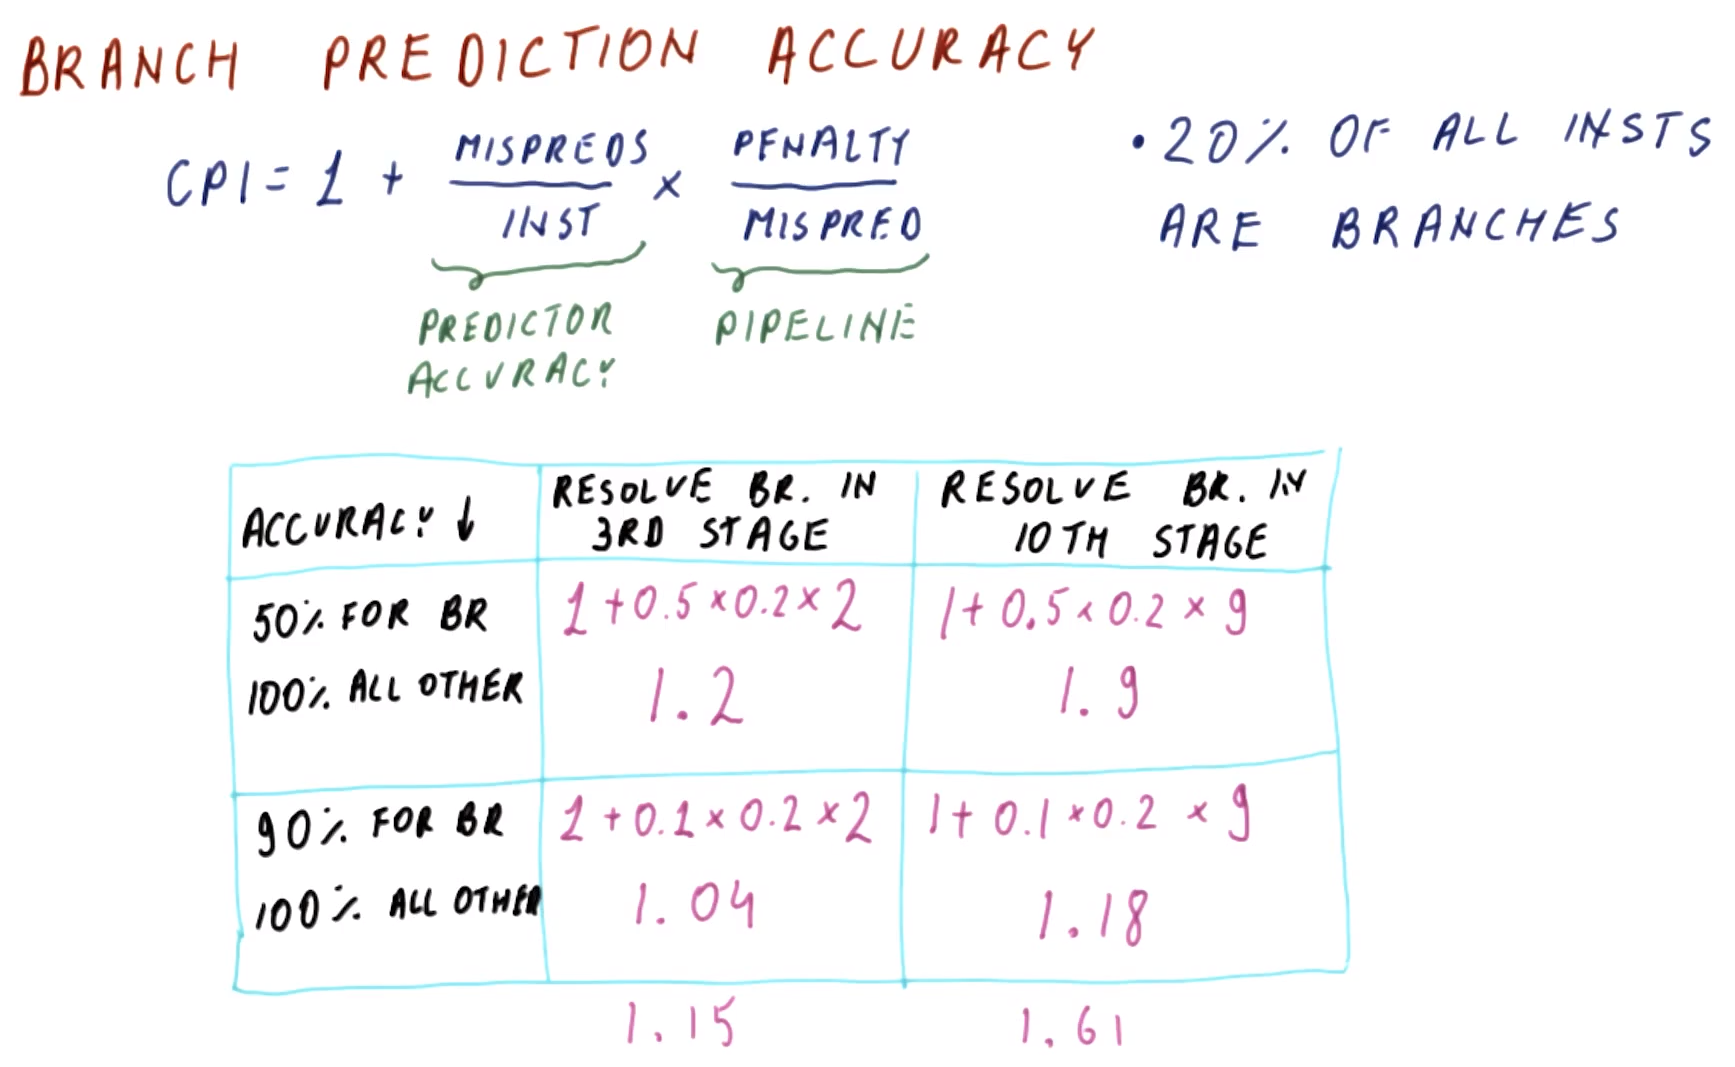 BRANCH PREDICTION ACCURACY
CPI = 1 + MISPREDS / INST × PENALTY / MISPRED
• 20% OF ALL INSTS
ARE BRANCHES
PREDICTOR
ACCURACY
PIPELINE
ACCURACY ↓
RESOLVE BR. IN
3RD STAGE
RESOLVE BR. IN
10TH STAGE
50% FOR BR
100% ALL OTHER
1 + 0.5 × 0.2 × 2
1.2
1 + 0.5 × 0.2 × 9
1.9
90% FOR BR
100% ALL OTHER
1 + 0.1 × 0.2 × 2
1.04
1 + 0.1 × 0.2 × 9
1.18
1.15
1.61